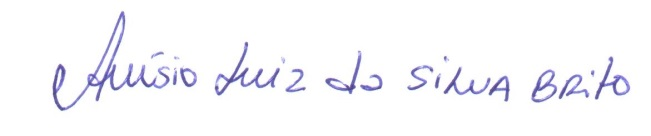 Aluisio Luiz da SILVA BRITO